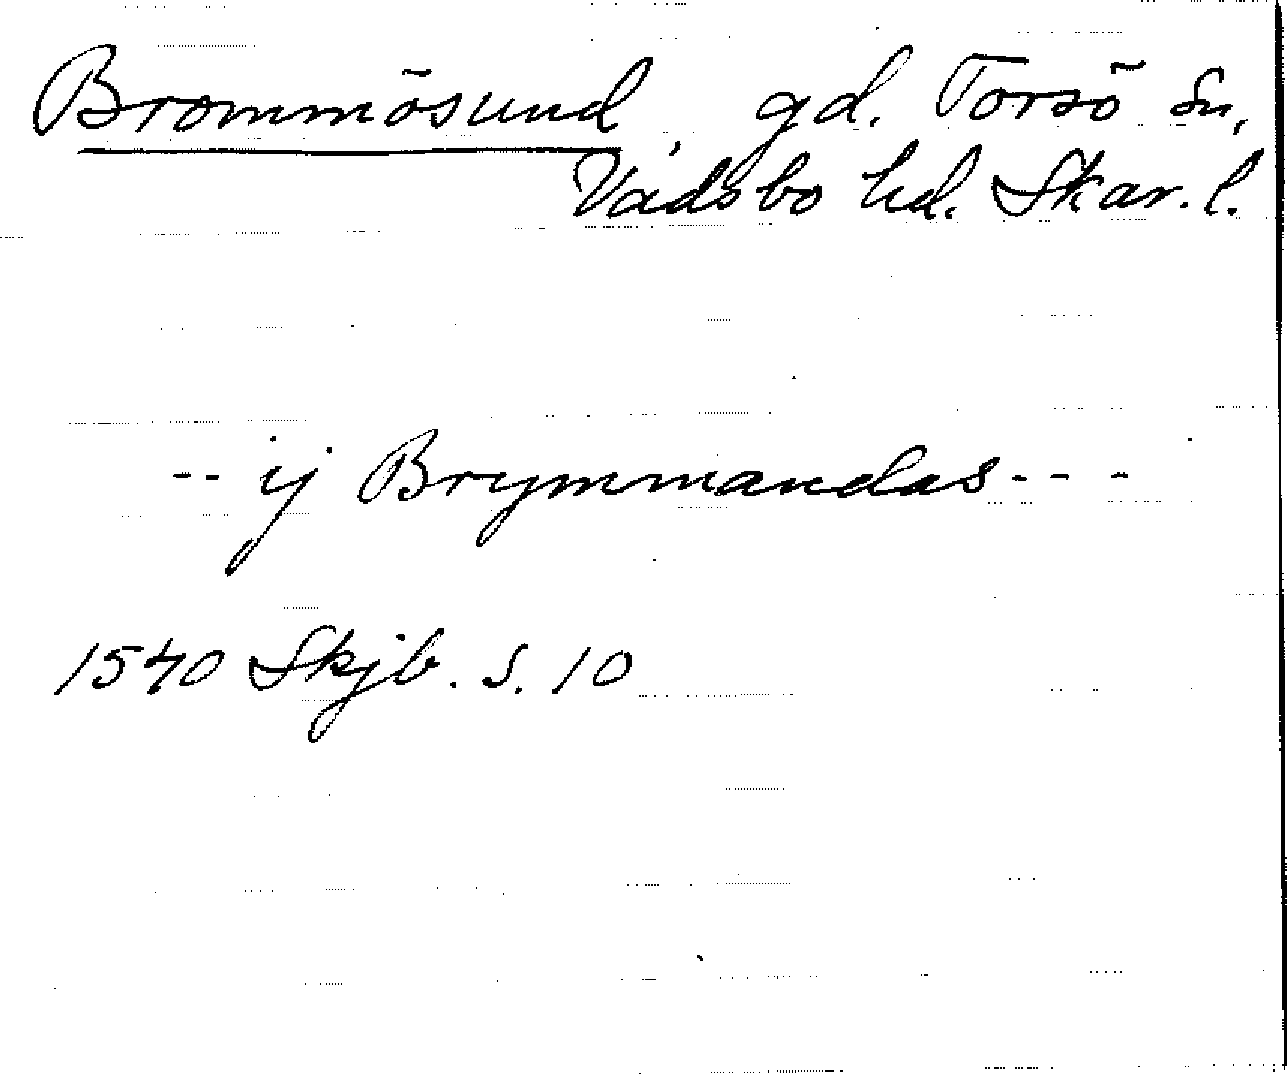 Brommösund, gd. Torsö sn,
Vadsbo hd. Skar. l.
-- ij Brymmandas---
1540 Skjb. s. 10